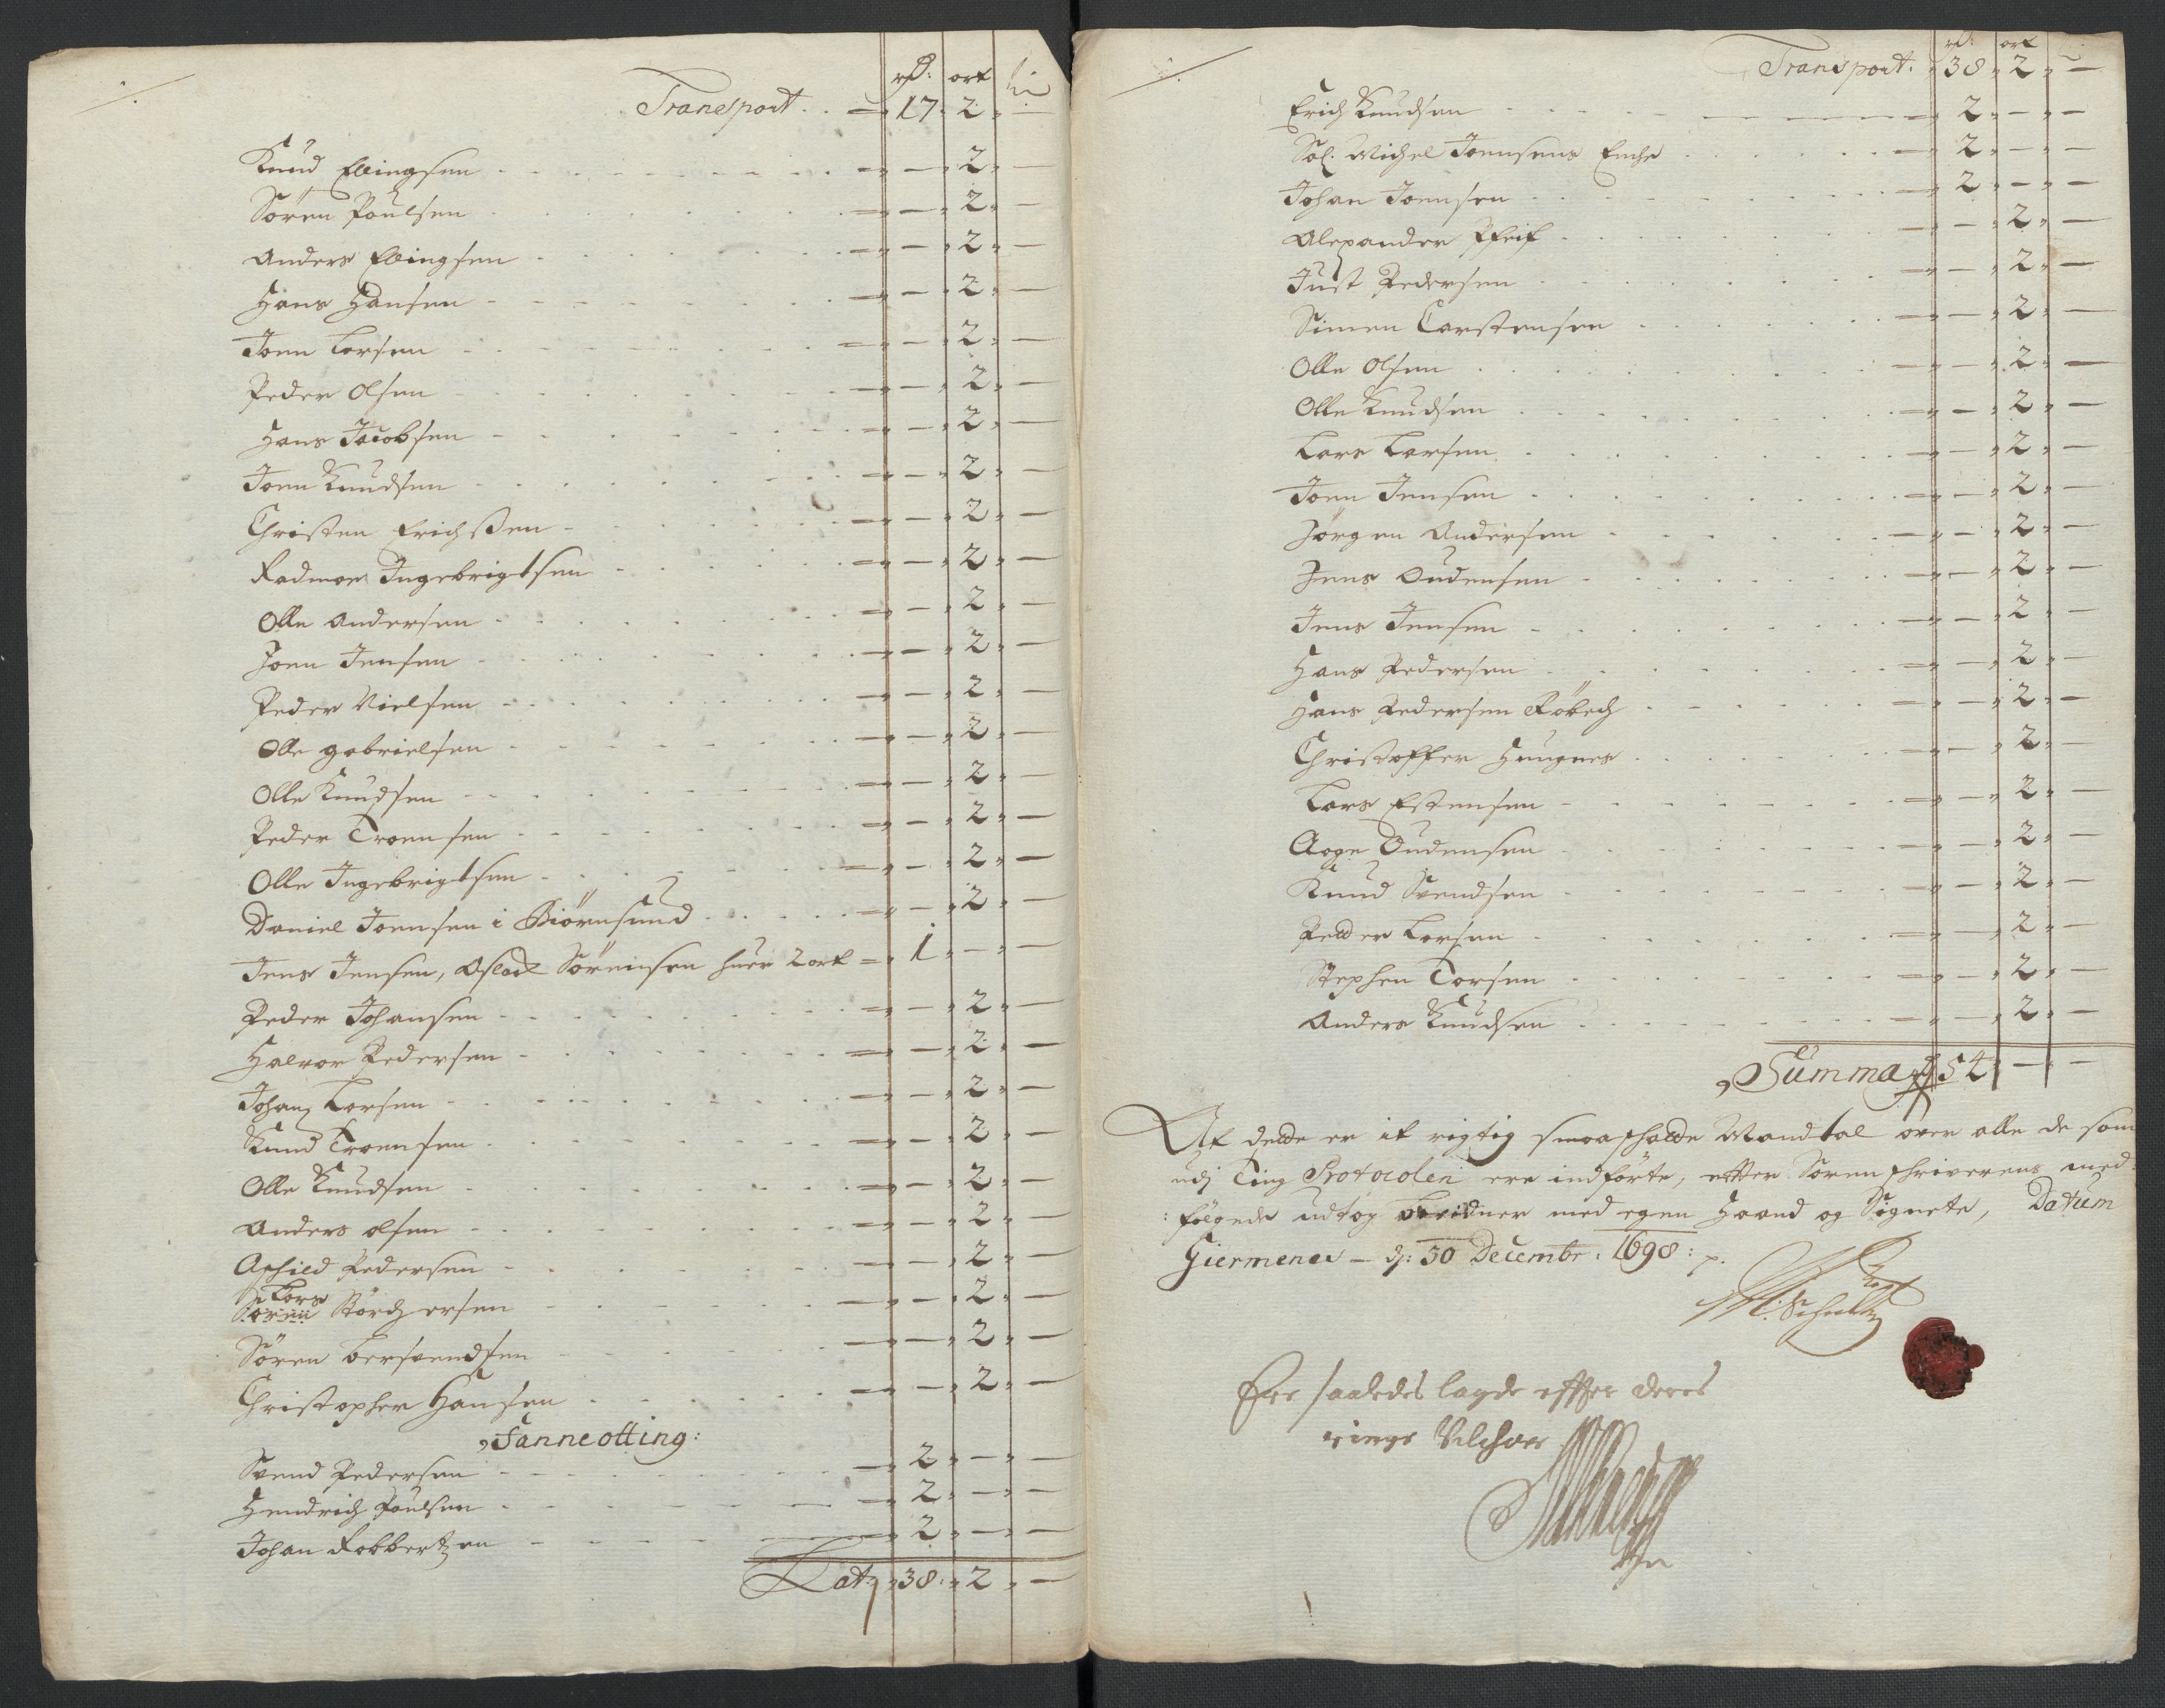 rd: ort
Transport . . 17 . 2 . —
Knud Ellingsen — . 2 . —
Sören Poulsen — . 2 . —
Anders Ellingsen — . 2 . —
Hans Hansen — . 2 . —
Joen Larsen — . 2 . —
Peder Olsen — . 2 . —
Hans Jacobsen — . 2 . —
Joen Knudsen — . 2 . —
Christen Erichssen — . 2 . —
Radmoe Ingebrigtsen — . 2 . —
Olle Andersen — . 2 . —
Joen Jensen — . 2 . —
Peder Nielsen — . 2 . —
Olle gabrielsen — . 2 . —
Olle Knudsen — . 2 . —
Peder Troensen — . 2 . —
Olle Ingebrigtsen — . 2 . —
Daniel Joensen i Biörnsund — . 2 . —
Jens Jensen, Aslack Sörensen huer 2 ort 1 . — . —
Peder Johansen — . 2 . —
Halvor Pedersen — . 2 . —
Johan Larsen — . 2 . —
Knud Troensen — . 2 . —
Olle Knudsen — . 2 . —
Anders olsen — . 2 . —
Aschild Pedersen — . 2 . —
Lars
Sören Störchersen — . 2 . —
Sören bersvendsen — . 2 . —
Christopher Hansen — . 2 . —
Fanneotting:
Svend Pedersen 2 . — . —
Hendrich Poulsen 2 . — . —
Johan Robbertzen 2 . — . —
Lat. 38 . 2 . —
rd: ort
Transport. 38 . 2 . —
Erich Knudsen 2 . — . —
Sal. Michel Joensens Enche 2 . — . —
Johan Joensen 2 . — . —
Alexander Pfeif — . 2 . —
Just Pedersen — . 2 . —
Simen Carstensen — . 2 . —
Olle Olsen — . 2 . —
Olle Knudsen — . 2 . —
Lars Larsen — . 2 . —
Joen Jensen — . 2 . —
Jörgen Andersen — . 2 . —
Jens Oudensen — . 2 . —
Jens Jensen — . 2 . —
Hans Pedersen — . 2 . —
Hans Pedersen Röbech — . 2 . —
Christoffer Hungnes — . 2 . —
Lars Estensen — . 2 . —
Aage Oudensen — . 2 . —
Knud Svendsen — . 2 . —
Pedder Larsen — . 2 . —
Stephen Torsen — . 2 . —
Anders Knudsen — . 2 . —
Summa rd 54 . — . —
At dette er it rigtig Mandtal over alle de som
udj Ting Protocolen ere indförte, efter Sorenschriverens med-
:fölgende udtog med egen Haand og Signete, Datum
Giermenes — dj: 30 Decembr: 1698:
M: Schultz
Ere saaledes lagde effter deres